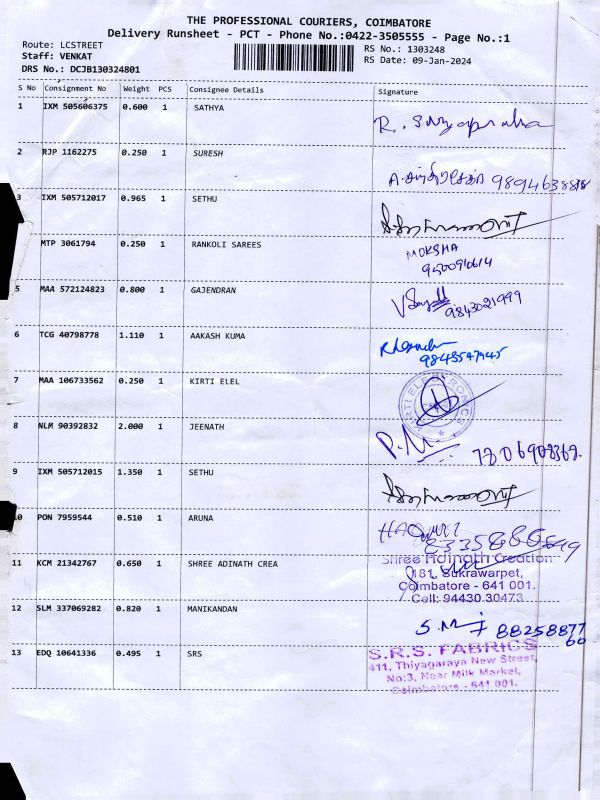 THE PROFESSIONAL COURIERS, COIMBATORE
Delivery Runsheet - PCT - Phone No.:0422-3505555 - Page No.:1
Route: LCSTREET
RS No.: 1303248
Staff: VENKAT
RS Date: 09-Jan-2024
DRS No.: DCJB130324801
S No Consignment No Weight PCS Consignee Details Signature
1 IXM 505606375 0.600 1 SATHYA
2 RJP 1162275 0.250 1 SURESH
3 IXM 505712017 0.965 1 SETHU
MTP 3061794 0.250 1 RANKOLI SAREES
MOKSHA
5 MAA 572124823 0.800 1 GAJENDRAN
9843021999
6 TCG 40798778 1.110 1 AAKASH KUMA
7 MAA 106733562 0.250 1 KIRTI ELEL
KIRTI ELECTRONICS
8 NLM 90392832 2.000 1 JEENATH
9 IXM 505712015 1.350 1 SETHU
10 PON 7959544 0.510 1 ARUNA
11 KCM 21342767 0.650 1 SHREE ADINATH CREA
Shree Adinath Creation
181, Sukrawarpet,
Coimbatore - 641 001.
Cell: 94430 30473
12 SLM 337069282 0.820 1 MANIKANDAN
88258877
60
13 EDQ 10641336 0.495 1 SRS
S.R.S. FABRICS
411, Thiyagaraya New Street,
No:3, Near Milk Market,
Coimbatore - 641 001.